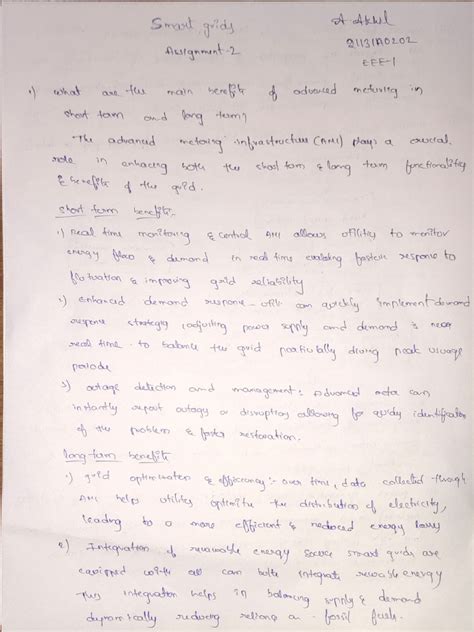 Smart grids
A Akhil
Assignment-2
21131A0202
EEE-1
1) what are the main benefits of advanced metering in
short term and long term?
The advanced metering infrastructure (AMI) plays a crucial
role in enhacing both the short term & long term functionalities
& benefits of the grid.
short term benefits:-
1) Real time monitoring & control AMI allows utility to monitor
energy flow & demand in real time enabling faster response to
fluctuation & improving grid reliability
2) enhanced demand response - can quickly implement demand
response strategies adjusting power supply and demand is near
real time - to balance the grid during peak usage
periods
3) outage detection and management: Advanced meter can
instantly report outage or disruption allowing for identification
of the problem & faster restoration.
long-term benefits
1) grid optimization & efficiency:- over time, data collected through
AMI helps utilities optimize the distribution of electricity,
leading to a more efficient & reduced energy losses
2) Integration of renewable energy source smart grids are
equipped with can both integrate energy
This integration helps in balancing supply & demand
dynamically reducing on fossil fuels.